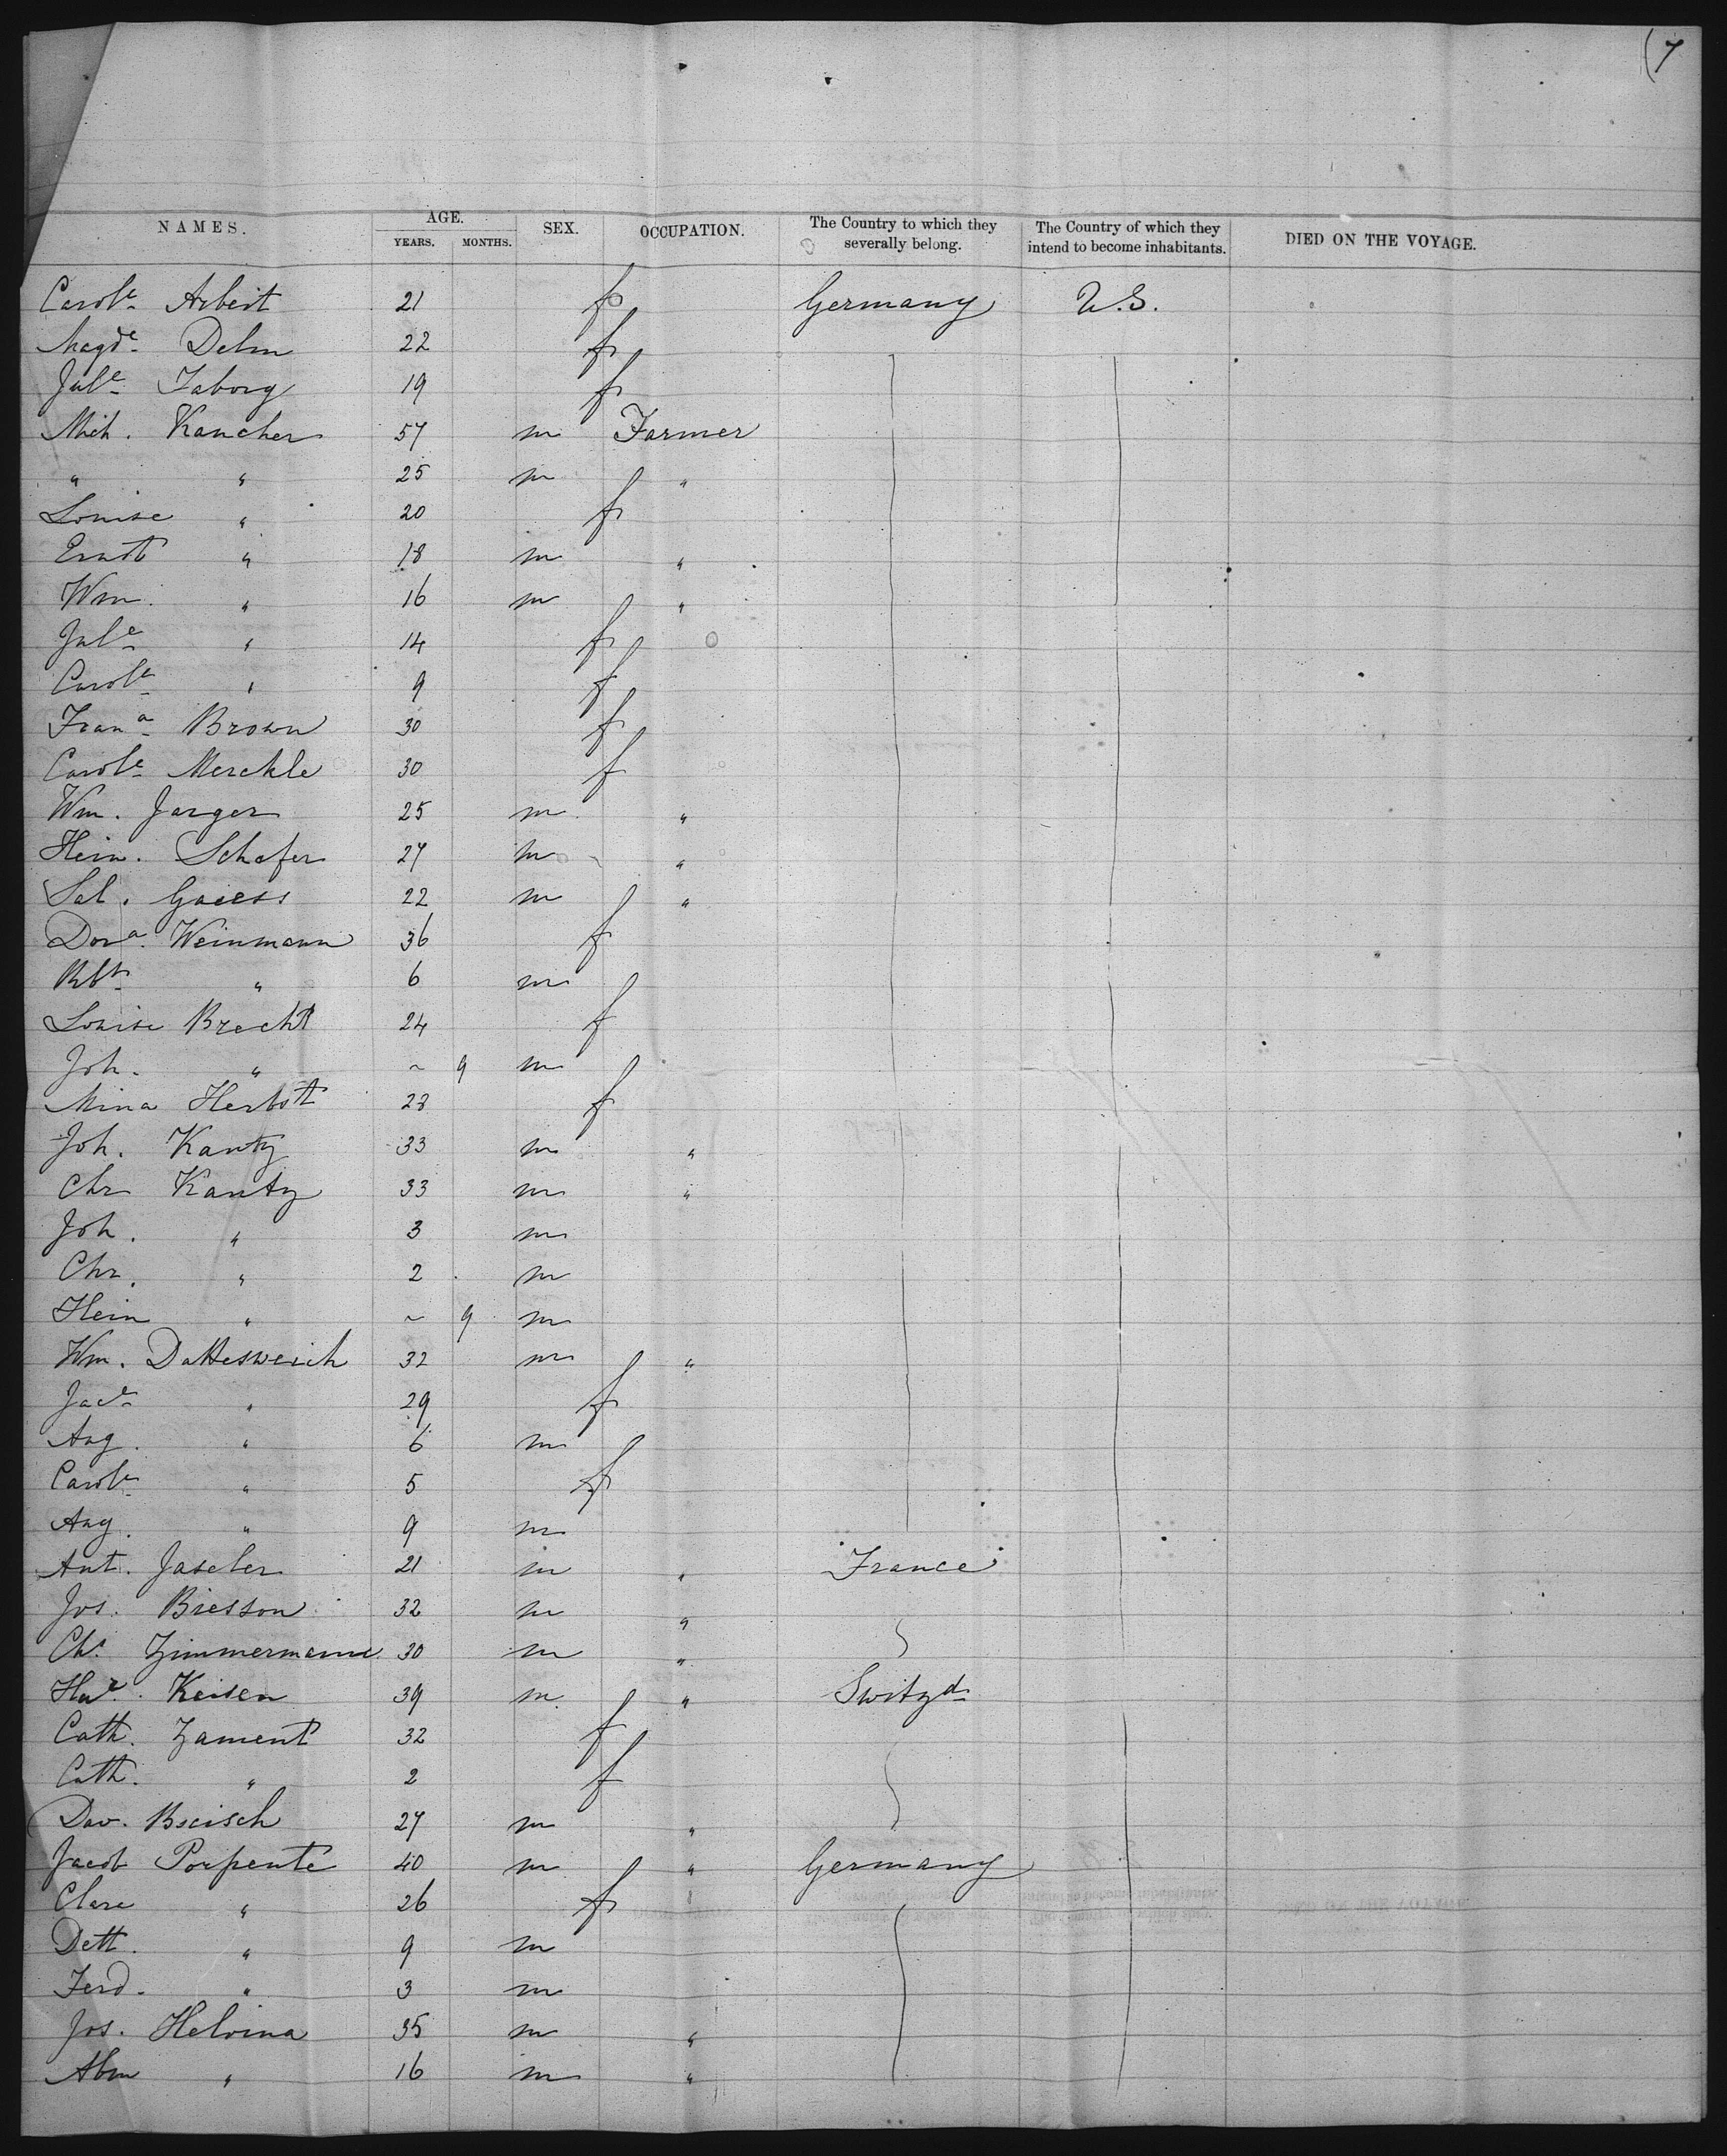 (7
NAMES. AGE. SEX. OCCUPATION. The Country to which they severally belong. The Country of which they intend to become inhabitants. DIED ON THE VOYAGE.
YEARS. MONTHS.
Carole Arbeit 21 f Germany U.S.
Magde Delm 22 f
Jule Taborg 19 f
Mich. Kancher 57 m Farmer
" " 25 m "
Louise " 20 f
Ernst " 18 m "
Wm. " 16 m "
Jule " 14 f
Carole " 9 f
Frana Brown 30 f
Carole Merckle 30 f
Wm. Jarger 25 m "
Hein. Schafer 27 m "
Sal. Gaiess 22 m "
Dora Weinmann 36 f
Rbt " 6 m
Louise Brecht 24 f
Joh. " ~ 9 m
Mina Herbstt 28 f
Joh. Kantz 33 m "
Chr Kantz 33 m "
Joh. " 3 m
Chr. " 2 m
Hein " ~ 9 m
Wm. Datteswerich 32 m "
Jace " 29 f
Aug. " 6 m
Carole " 5 f
Aug. " 9 m
Ant. Jaseler 21 m " France
Jos. Bresson 32 m "
Chs. Zimmermann 30 m "
Keisen 39 m " Switzd
Cath. Zament 32 f
Cath. " 2 f
Dav. Bscisch 27 m "
Jacob Porpente 40 m " Germany
Clare " 26 f
Dett. " 9 m
Ferd. " 3 m
Jos. Helvina 35 m "
Abm " 16 m "